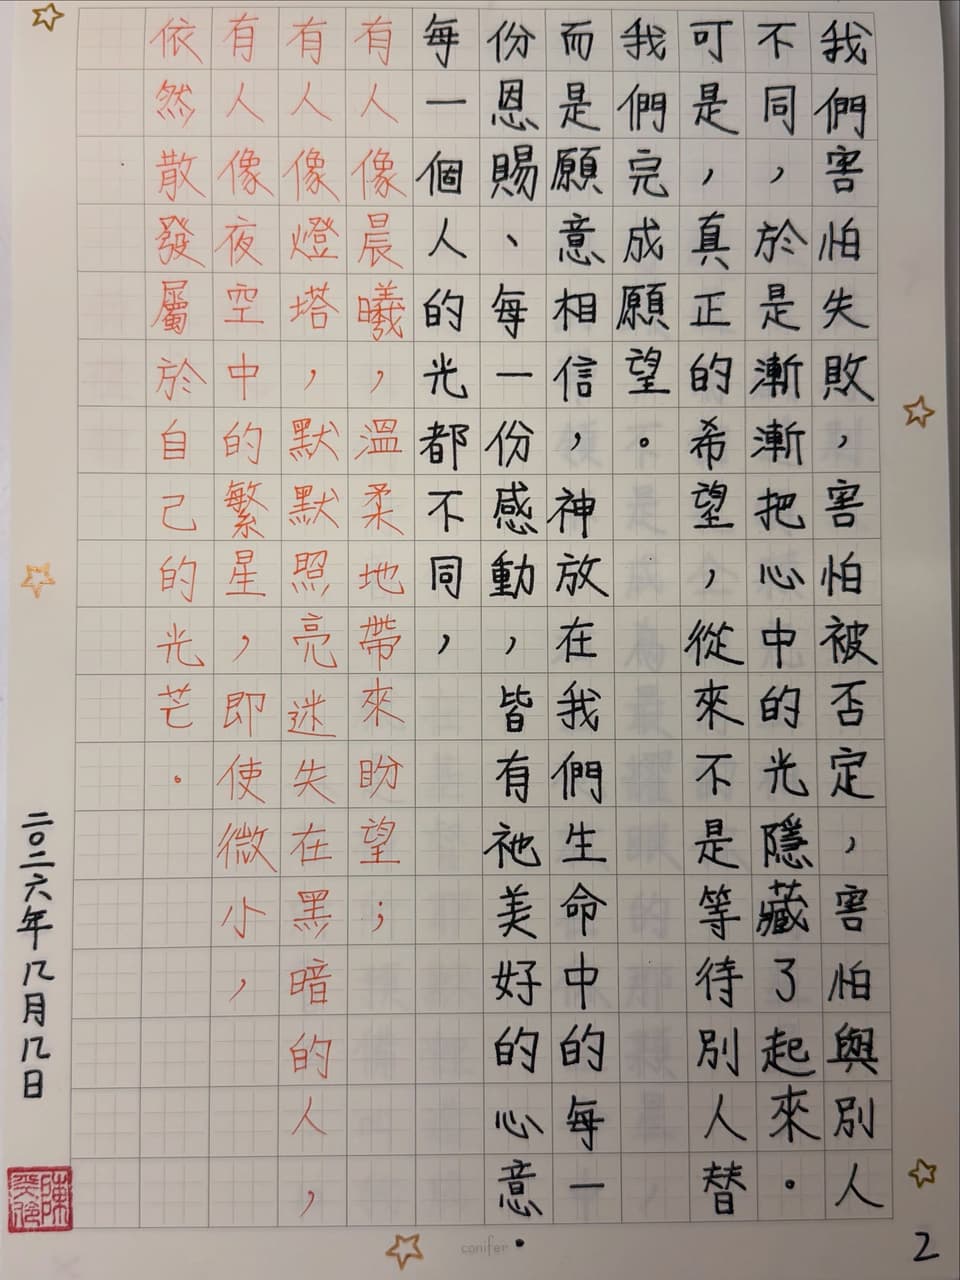 我們害怕失敗，害怕被否定，害怕與別人
不同，於是漸漸把心中的光隱藏了起來。
可是，真正的希望，從來不是等待別人替
我們完成願望。
而是願意相信，神放在我們生命中的每一
份恩賜、每一份感動，皆有祂美好的心意
每一個人的光都不同，
有人像晨曦，溫柔地帶來盼望；
有人像燈塔，默默照亮迷失在黑暗的人，
有人像夜空中的繁星，即使微小，
依然散發屬於自己的光芒。
二〇二六年八月八日
conifer
2